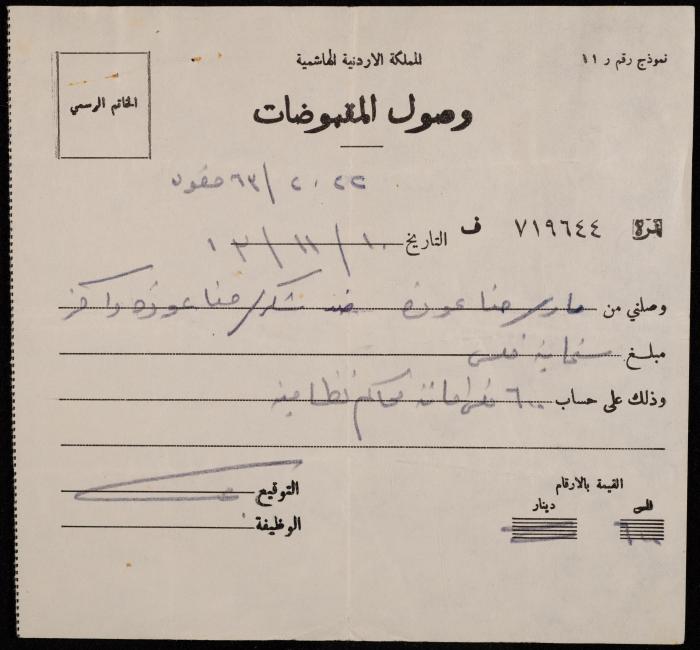 نموذج رقم ر ١١
المملكة الاردنية الهاشمية
الخاتم الرسمي
وصول المقبوضات
٢٠٢٢ / ٦٣ حقوق
نمرة ٧١٩٦٤٤ ف
التاريخ ١٠ / ١١ /
وصلني من ماري حنا عوده ضد شكري حنا عوده واخر
مبلغ ستماية فلس
وذلك على حساب ٦٠٠ فلس امانة محاكم نظامية
القيمة بالارقام
فلس دينار
٦٠٠
التوقيع
الوظيفة